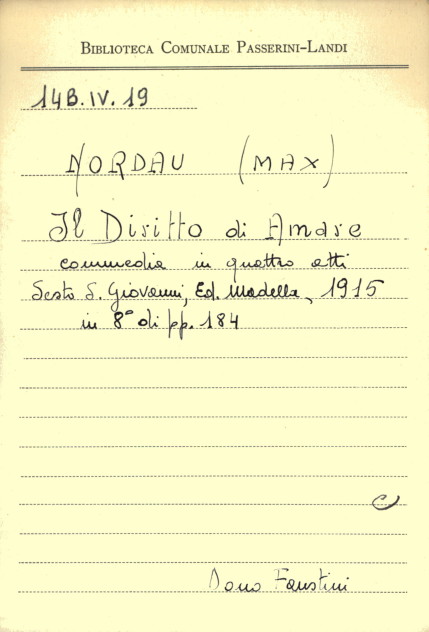 BIBLIOTECA COMUNALE PASSERINI-LANDI
14B.IV.19
NORDAU (MAX)
Il Diritto di Amare
commedia in quattro atti
Sesto S. Giovanni, Ed. Madella, 1915
in 8° di pp. 184
Dono Faustini